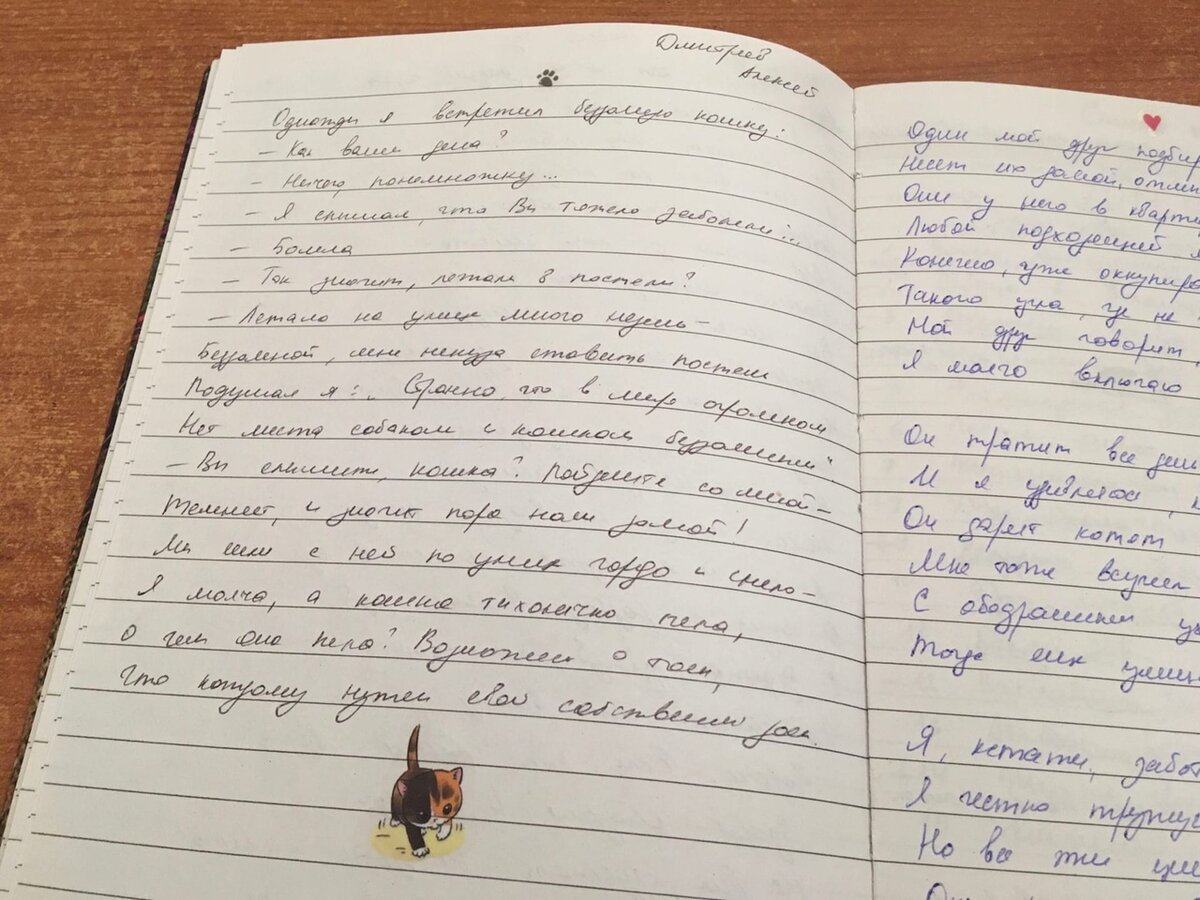 Дмитриев
Алексей
Однажды я встретил бездомную кошку:
– Как ваши дела?
– Ничего понемножку...
– Я слышал, что Вы тяжело заболели...
– Болела
– Так значит, лежали в постели?
– Лежала на улице много недель –
Бездомной, мне некуда ставить постель
Подумал я: „Странно, что в мире огромном
Нет места собакам и кошкам бездомным"
– Вы слышите, кошка? Пойдемте со мной –
Темнеет, и значит пора нам домой!
Мы шли с ней по улице гордо и смело –
Я молча, а кошка тихонечко пела,
О чем она пела? Возможно о том,
Что каждому нужен свой собственный дом.
Один мой друг подбир
Несет их домой, отмы
Они у него в кварти
Любой подходящей
Конечно, уже оккупиро
Такого угла, где не
Мой друг говорит
Я молча включаю
Он тратит все день
И я удивляюсь,
Он дарит котят
Мне тоже всучил
С ободранным
Тогда
Я, кстати, забот
Я честно тружус
Но все же